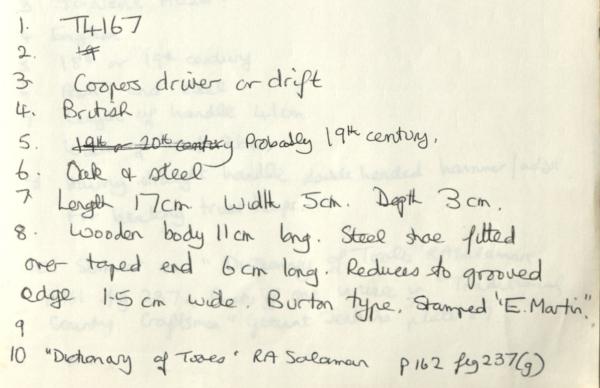 1. T4167
2.
3. Coopers driver or drift
4. British
5. 19th or 20th century Probably 19th century.
6. Oak & steel
7 Length 17cm Width 5cm. Depth 3cm.
8. Wooden body 11cm long. Steel shoe fitted
over taped end 6cm long. Reduces to grooved
edge 1.5cm wide. Burton type. Stamped "E. Martin".
9
10 "Dictionary of Tools" RA Salaman p162 fig 237(g)